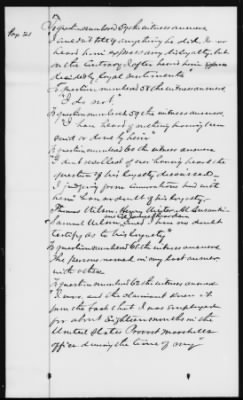 Page 21
To question numbered 57 the witness answered
I could not tell of anything he did. I never
heard him express any disloyalty, but
on the contrary I often heard him express
decidedly loyal sentiments"
To question numbered 58 the witness answered
"I do not."
To question numbered 59 the witness answered
"I have heard of nothing having been
said or done by him"
To question numbered 60 the witness answered
"I dont recollect of ever hearing heard the
question of his loyalty discussed
I judging from conversations had with
him had no doubt of his loyalty.
Thomas Wilson, Henry
Samuel Wilson, and I have no doubt
testify as to his loyalty"
To question numbered 61 the witness answered
The persons named in my last answer
with others
To question numbered 62 the witness answered
I was, and the claimant knew it
from the fact that I was employed
for about Eighteen months in the
United States Provost Marshalls
office during the time of war"